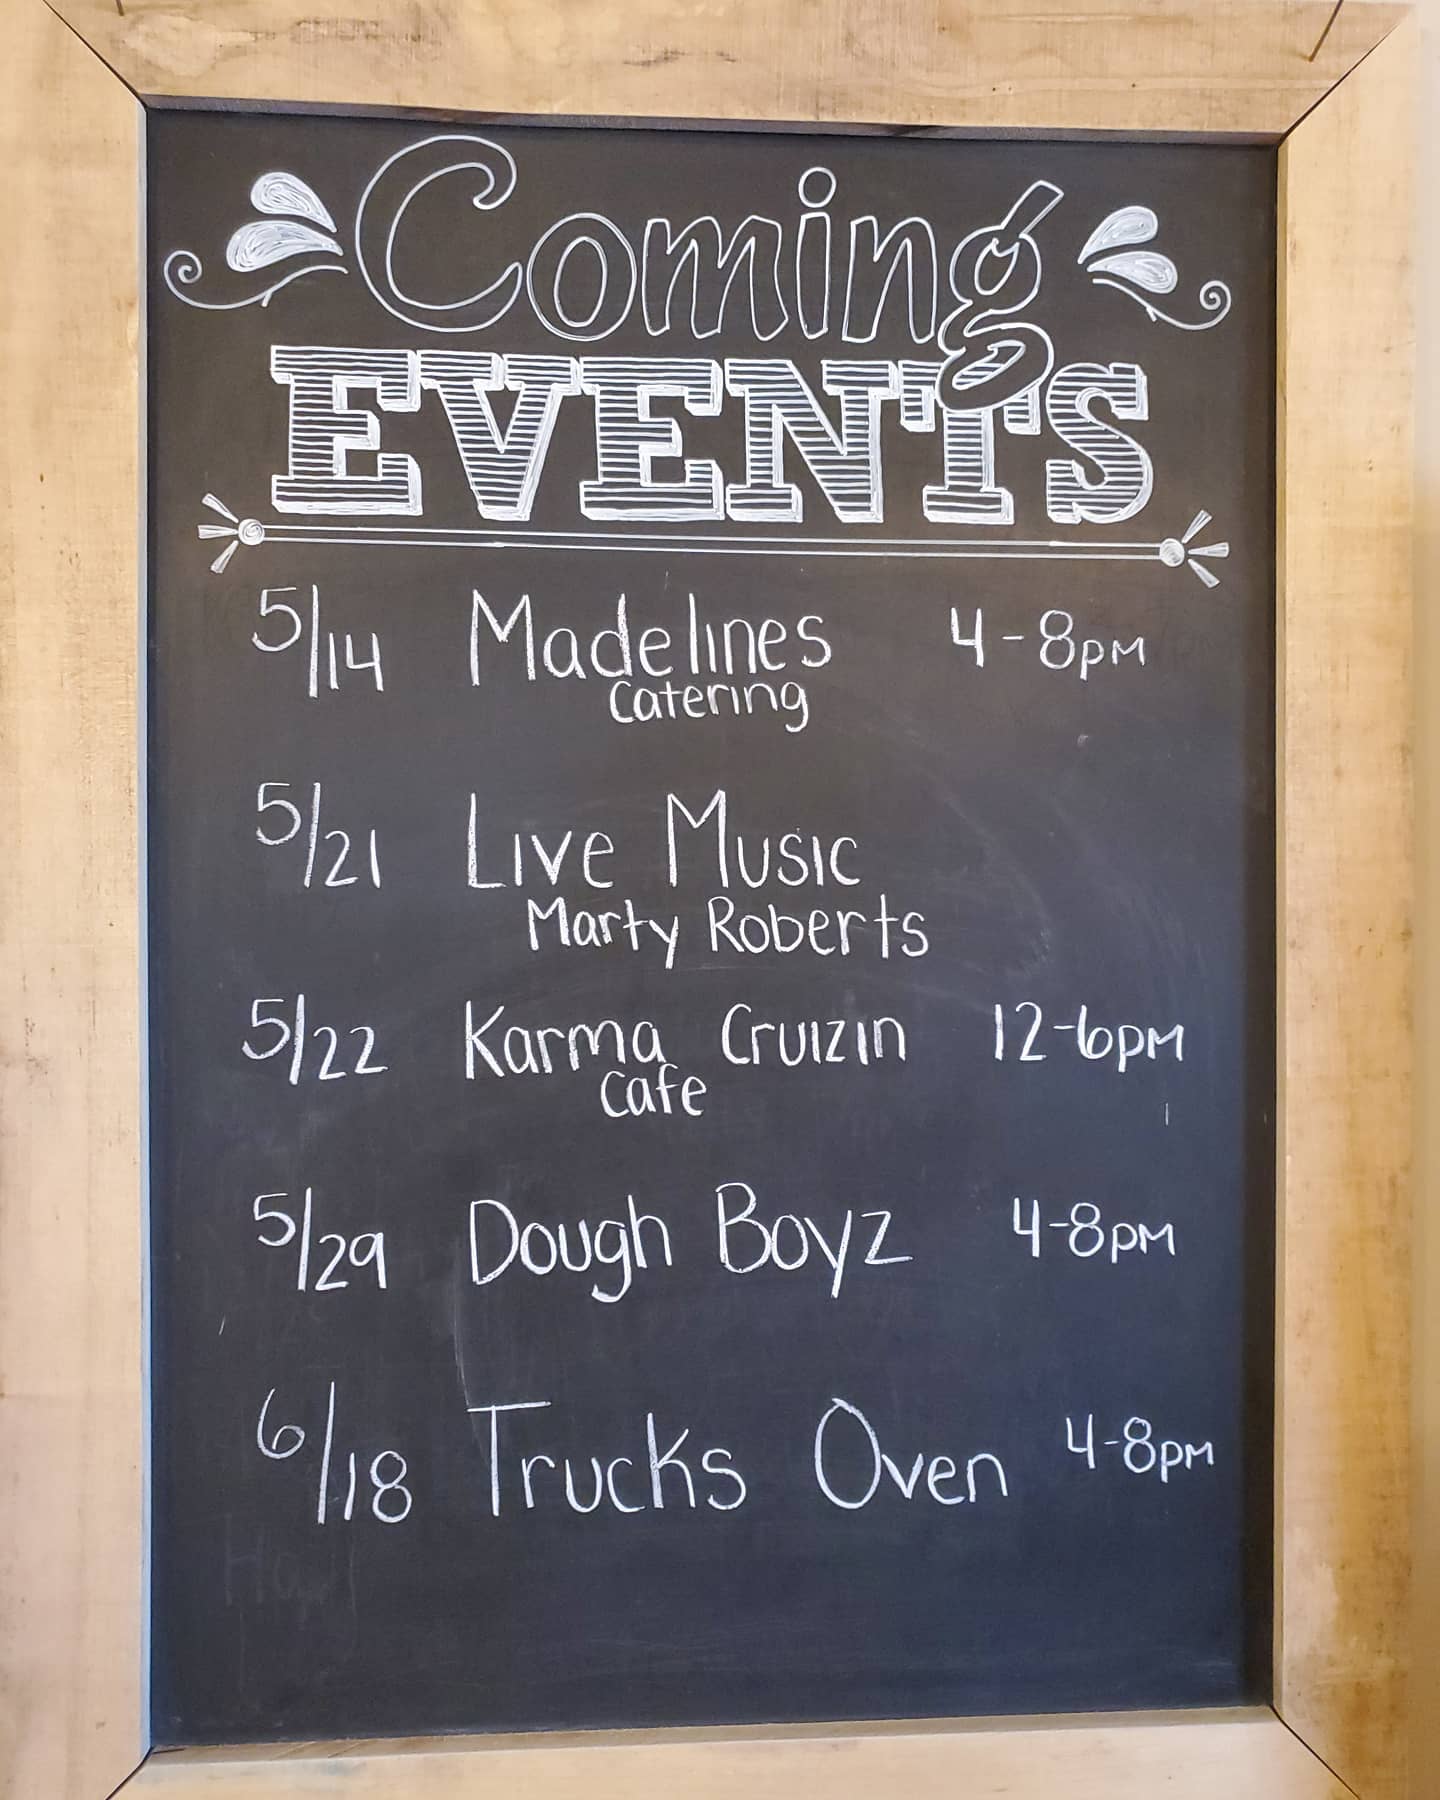 Coming
EVENTS
5/14 Madelines 4-8pm
Catering
5/21 Live Music
Marty Roberts
5/22 Karma Cruizin 12-6pm
Cafe
5/29 Dough Boyz 4-8pm
6/18 Trucks Oven 4-8pm